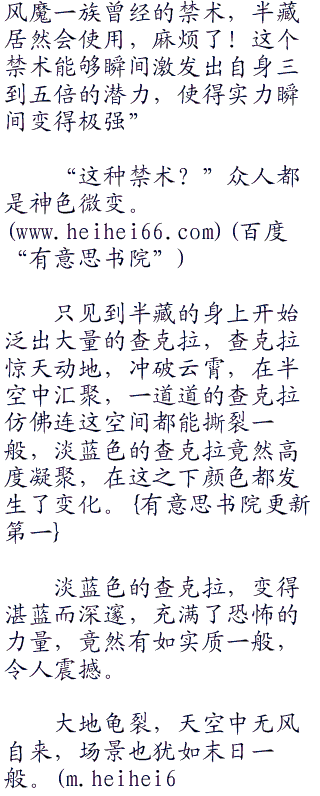 风魔一族曾经的禁术，半藏
居然会使用，麻烦了！这个
禁术能够瞬间激发出自身三
到五倍的潜力，使得实力瞬
间变得极强”
“这种禁术？”众人都
是神色微变。
(www.heihei66.com)(百度
“有意思书院”)
只见到半藏的身上开始
泛出大量的查克拉，查克拉
惊天动地，冲破云霄，在半
空中汇聚，一道道的查克拉
仿佛连这空间都能撕裂一
般，淡蓝色的查克拉竟然高
度凝聚，在这之下颜色都发
生了变化。{有意思书院更新
第一}
淡蓝色的查克拉，变得
湛蓝而深邃，充满了恐怖的
力量，竟然有如实质一般，
令人震撼。
大地龟裂，天空中无风
自来，场景也犹如末日一
般。(m.heihei6